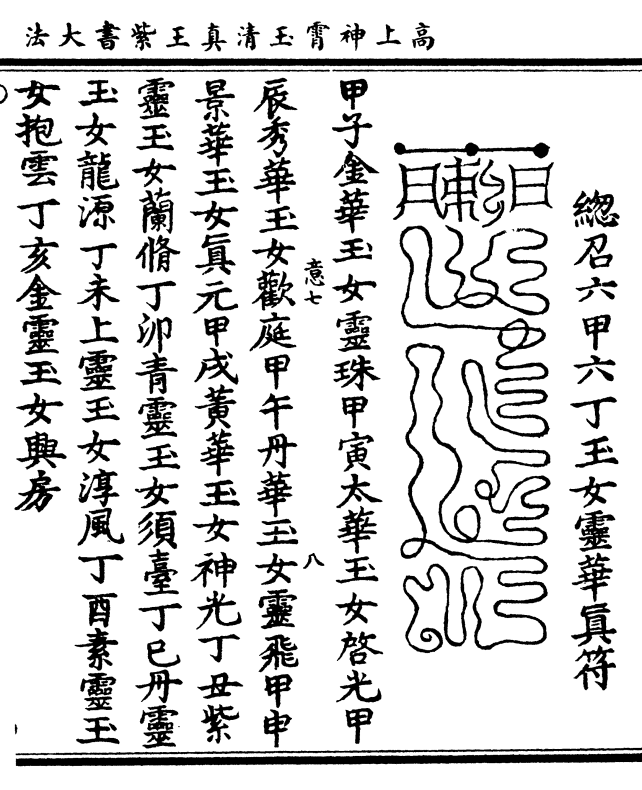 高上神霄玉清真王紫書大法
總召六甲六丁玉女靈華眞符
甲子金華玉女靈珠甲寅太華玉女啓光甲
意七
八
辰秀華玉女歡庭甲午丹華玉女靈飛甲申
景華玉女眞元甲戌黃華玉女神光丁丑紫
靈玉女蘭脩丁卯青靈玉女須臺丁巳丹靈
玉女龍源丁未上靈玉女淳風丁酉素靈玉
女抱雲丁亥金靈玉女興房